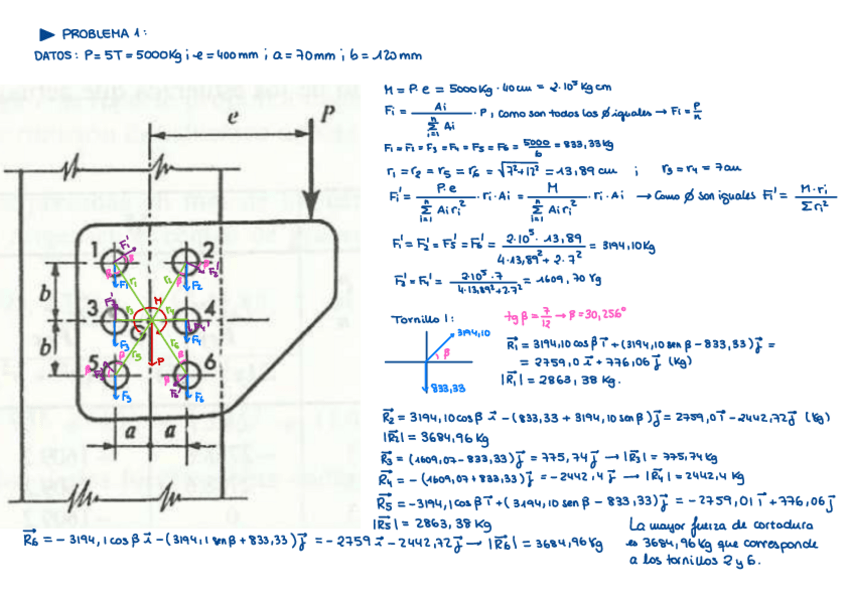 ▶ PROBLEMA 1:
DATOS: P = 5T = 5000Kg ; e = 400mm ; a = 70mm ; b = 120mm
M = P. e = 5000 Kg . 40 cm = 2.10⁵ Kg cm
Fi = Ai / Σ Ai (i=1, n) . P , como son todos los ø iguales → Fi = P/n
F1 = F2 = F3 = F4 = F5 = F6 = 5000/6 = 833,33 Kg
r1 = r2 = r5 = r6 = √7²+12² = 13,89 cm ; r3 = r4 = 7 cm
Fi' = P.e / Σ Ai ri² (i=1, n) . ri . Ai = M / Σ Ai ri² (i=1, n) . ri . Ai → Como ø son iguales Fi' = M . ri / Σ ri²
F1' = F2' = F5' = F6' = 2.10⁵ . 13,89 / 4.13,89² + 2.7² = 3194,10 Kg
F3' = F4' = 2.10⁵ . 7 / 4.13,89² + 2.7² = 1609,70 Kg
Tornillo 1:
tg β = 7/12 → β = 30,256°
3194,10
β
833,33
R1 = 3194,10 cos β i + (3194,10 sen β - 833,33) j =
= 2759,0 i + 776,06 j (Kg)
|R1| = 2863,38 Kg.
R2 = 3194,10 cos β i - (833,33 + 3194,10 sen β) j = 2759,0 i - 2442,72 j (Kg)
|R2| = 3684,96 Kg
R3 = (1609,07 - 833,33) j = 775,74 j → |R3| = 775,74 Kg
R4 = - (1609,07 + 833,33) j = - 2442,4 j → |R4| = 2442,4 Kg
R5 = -3194,1 cos β i + (3194,10 sen β - 833,33) j = -2759,01 i + 776,06 j
|R5| = 2863,38 Kg
R6 = - 3194,1 cos β i - (3194,1 sen β + 833,33) j = - 2759 i - 2442,72 j → |R6| = 3684,96 Kg
La mayor fuerza de cortadura
es 3684,96 Kg que corresponde
a los tornillos 2 y 6.
e
P
1 F1' β F1 r1 r2 2 β F2' F2
b
M
3 F3 4 F4
C
b
P
5 β F5 r5 r6 6 β F6
a a